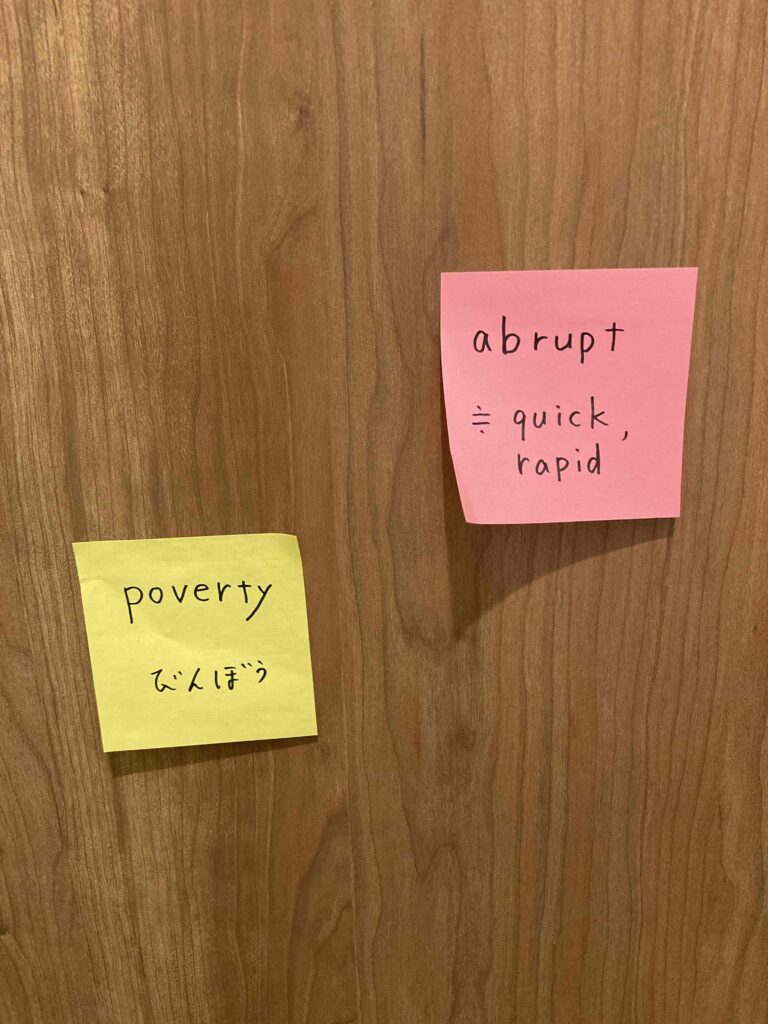 abrupt
≒ quick,
rapid
poverty
びんぼう